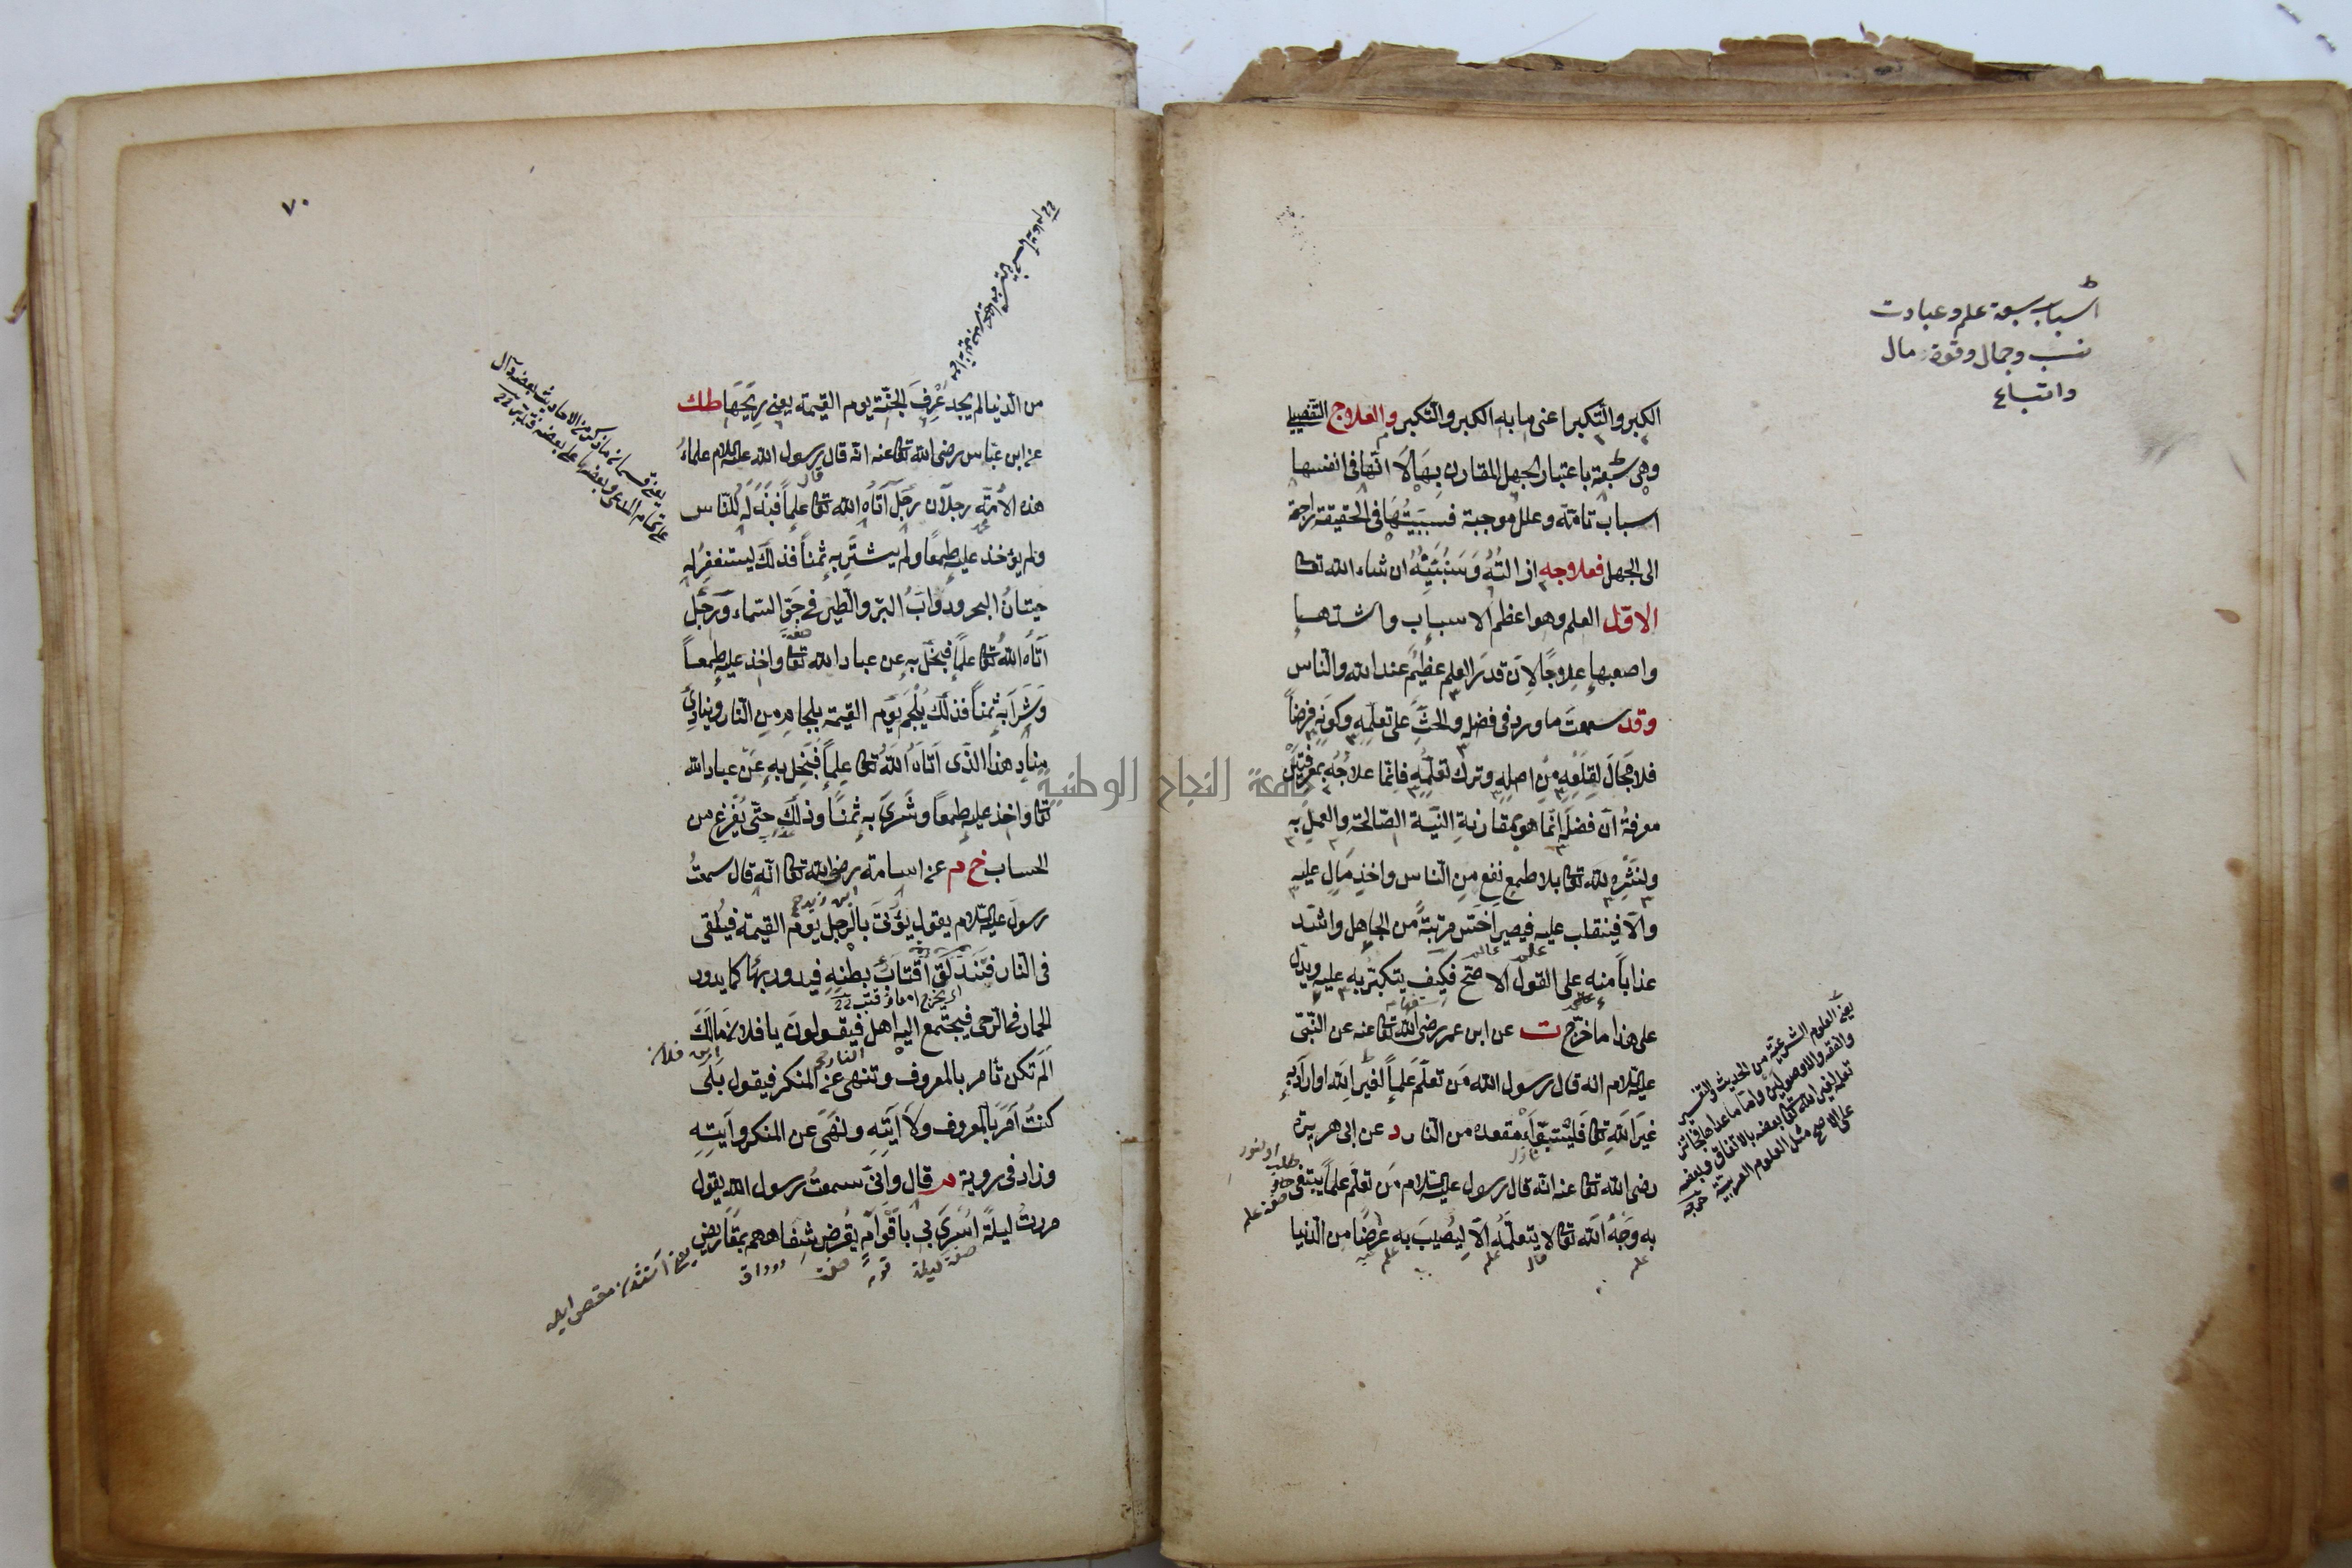 اسباب سبعة علم وعبادت
نسب وجمال وقوة ومال
واتباع
الكبر والتكبر اعنى ما به الكبر والتكبر والعلاج التفصيلى
وهى سبعة باعتبار الجهل المقارن بها لا انها فى انفسها
اسباب تامة وعلل موجبة فسببيتها فى الحقيقة راجعة
الى الجهل فعلاجه ازالته وسنبينه ان شاء الله تعا
الاول العلم وهو اعظم الاسباب واشدها
واصعبها علاجا لان قدر العلم عظيم عند الله والناس
وقد سمعت ما ورد فى فضله والحث على تعلمه وكونه فرضا
فلا مجال لقلعه من اصله وترك تعلمه فانما علاجه بمعرفتين
معرفة ان فضله انما هو بمقارنة النية الصالحة والعمل به
ونشره لله تعا بلا طمع نفع من الناس واخذ مال عليه
والا فينقلب عليه فيصير اخس مرتبة من الجاهل واشد
عذابا منه على القول الاصح فكيف يتكبر به عليه ويدل
على هذا ما خرج ت عن ابن عمر رضى الله تعا عنه عن النبى
عليه السلام انه قال رسول الله من تعلم علما لغير الله او اراد به
غير الله تعا فليتبوأ مقعده من النار د عن ابى هريرة
رضى الله تعا عنه انه قال رسول عليه السلام من تعلم علما يبتغى
به وجه الله تعا لا يتعلمه الا ليصيب به عرضا من الدنيا
يعنى العلوم الشرعية من الحديث والتفسير
والفقه والاصولين واما ما عداها فجائز
تعلمه لغير الله تعا بعضه بالاتفاق وبعضه
على الاصح مثل العلوم العربية
جامعة النجاح الوطنية
٧٠
من الدنيا لم يجد عرف الجنة يوم القيمة يعنى ريحها طك
عن ابن عباس رضى الله تعا عنه انه قال رسول الله عليه السلام علماء
هذه الامة رجلان رجل آتاه الله تعا علما فبذله للناس
ولم يؤخذ عليه طمعا ولم يشتر به ثمنا فذلك ليستغفر له
حيتان البحر ودواب البر والطير فى جو السماء ورجل
آتاه الله تعا علما فبخل به عن عباد الله تعا واخذ عليه طمعا
وشرا به ثمنا فذلك يلجم يوم القيمة بلجام من النار وينادى
مناد هذا الذى آتاه الله تعا علما فبخل به عن عباد الله
تعا واخذ عليه طمعا وشرى به ثمنا وذلك حتى يفرغ من
الحساب خ م عن اسامة رضى الله تعا انه قال سمعت
رسول عليه السلام يقول يؤتى بالرجل يوم القيمة فيلقى
فى النار فتندلق اقتاب بطنه فيدور بها كما يدور
الحمار فى الرحى فيجتمع اليه اهل فيقولون يا فلان مالك
الم تكن تأمر بالمعروف وتنهى عن المنكر فيقول بلى
كنت آمر بالمعروف ولا آتيه ونهى عن المنكر وآتيه
وزاد فى روية م قال وانى سمعت رسول الله يقول
مررت ليلة اسرى بى باقوام يقرض شفاههم بمقاريض